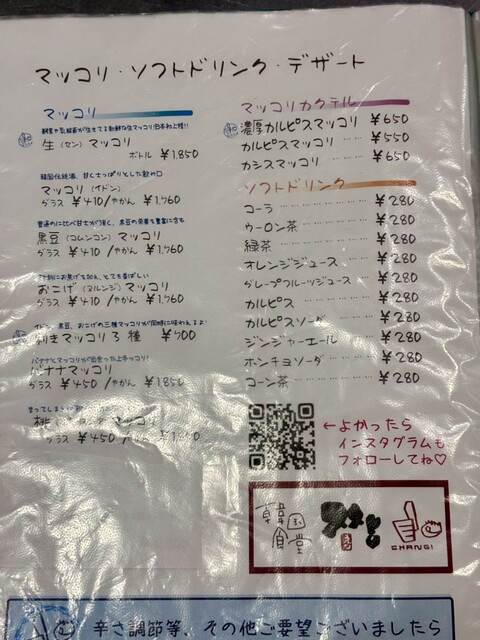 マッコリ・ソフトドリンク・デザート
マッコリ
生(セン)マッコリ
ボトル ¥1,850
韓国伝統酒、甘くさっぱりとした飲み口
マッコリ(イドン)
グラス ¥410/やかん ¥1,760
普通のに比べ甘さが強く、黒豆の栄養も豊富に含む
黒豆(コムンコン)マッコリ
グラス ¥410/やかん ¥1,760
おこげ(ヌルンジ)マッコリ
グラス ¥410/やかん ¥1,760
黒豆、おこげの三種マッコリが同時に味わえるよ!
利きマッコリ3種 ¥700
バナナとマッコリが出会った上手っコリ!
バナナマッコリ
グラス ¥450/やかん ¥1,850
桃
グラス ¥450/
マッコリカクテル
濃厚カルピスマッコリ ¥650
カルピスマッコリ ¥550
カシスマッコリ ¥650
ソフトドリンク
コーラ ¥280
ウーロン茶 ¥280
緑茶 ¥280
オレンジジュース ¥280
グレープフルーツジュース ¥280
カルピス ¥280
カルピスソーダ ¥280
ジンジャーエール ¥280
ホンチョソーダ ¥280
コーン茶 ¥280
←よかったら
インスタグラムも
フォローしてね♡
韓国
食堂
CHANG!
辛さ調節等、その他ご要望ございましたら